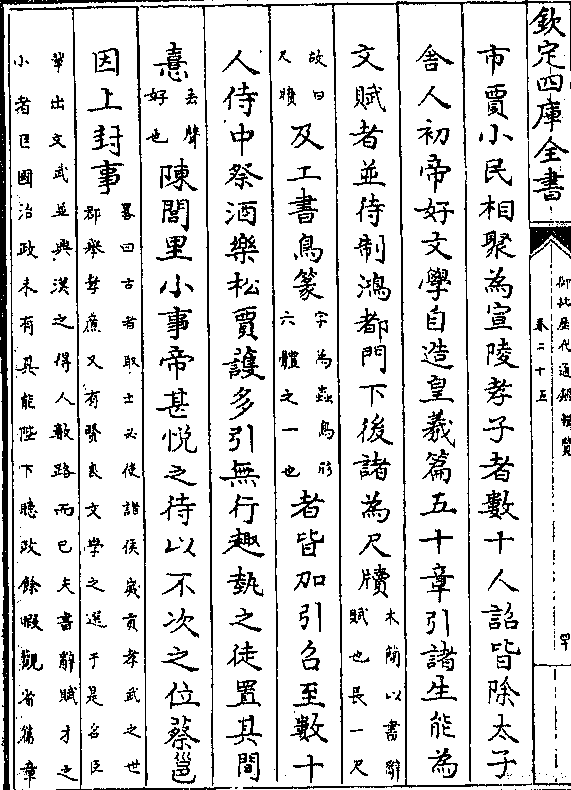 欽定四庫全書
御批歷代通鑑輯覽
卷二十五
市賈小民相聚為宣陵孝子者數十人詔皆除太子
舍人初帝好文學自造皇羲篇五十章引諸生能為
文賦者並待制鴻都門下後諸為尺牘木簡以書辭賦也長一尺
故曰尺牘及工書鳥篆字為蟲鳥形六體之一也者皆加引召至數十
人侍中祭酒樂松賈護多引無行趣埶之徒置其間
憙去聲好也陳閭里小事帝甚悅之待以不次之位蔡邕
因上封事畧曰古者取士必使諸侯歲貢孝武之世郡舉孝廉又有賢良文學之選于是名臣
輩出文武並興漢之得人數路而已夫書辭賦才之小者匡國治政未有其能陛下聽政餘暇觀省篇章